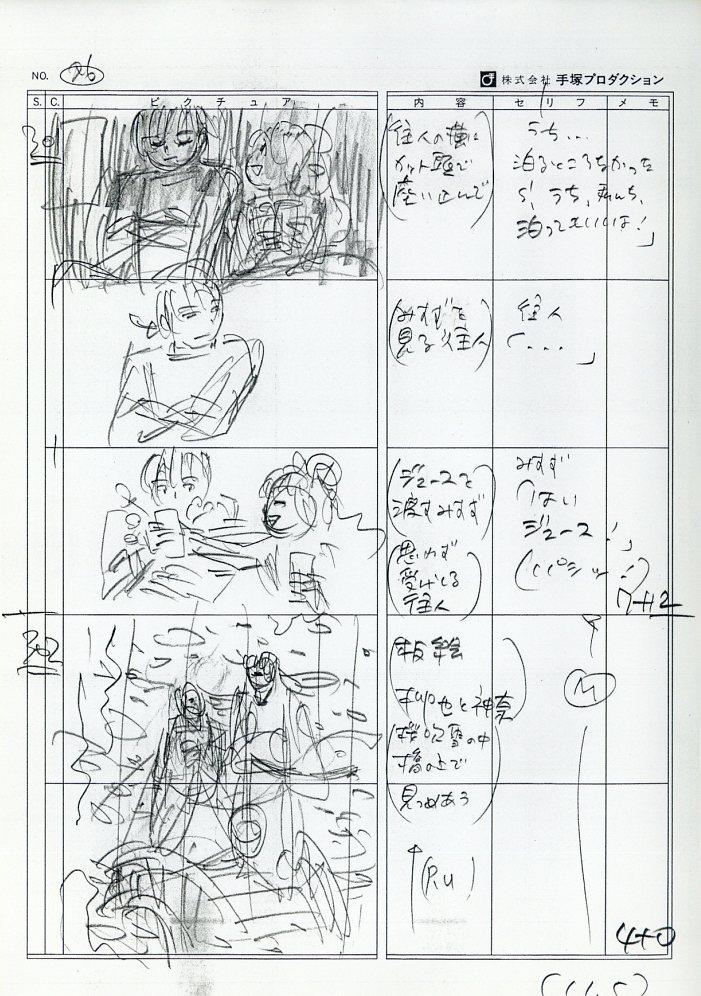 NO. 26
株式会社 手塚プロダクション
S. C. ピクチュア 内容 セリフ メモ
住人の横に
カット頭で
座り込んで
うち...
泊るところなかった
ら、うち、
泊ってもいいは!」
みすずを
見る住人
住人
「...」
ジュースを
渡すみすず
思わず
受けとる
住人
みすず
「はい
ジュース!」
(パシッ!)
7+12
302
止め絵
と神奈
桜吹雪の中
橋の上で
見つめあう
(P.U)
M
4+0